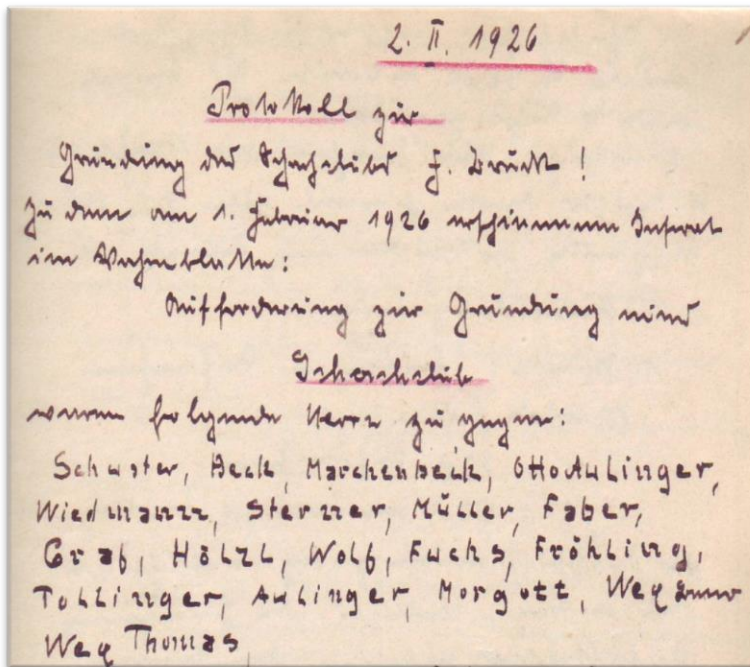 2. II. 1926
Protokoll zur
Gründung des Schachclubs F. Bruck!
Zu dem am 1. Februar 1926 erschienenen Inserat
im Wochenblatte:
Aufforderung zur Gründung eines
Schachclub
waren folgende Herrn zu gegen:
Schuster, Beck, Marchenbeck, Otto Aulinger,
Wiedmann, Sterner, Müller, Faber,
Graf, Hölzl, Wolf, Fuchs, Fröhling,
Tollinger, Aulinger, Morgott, Weq
Weq Thomas